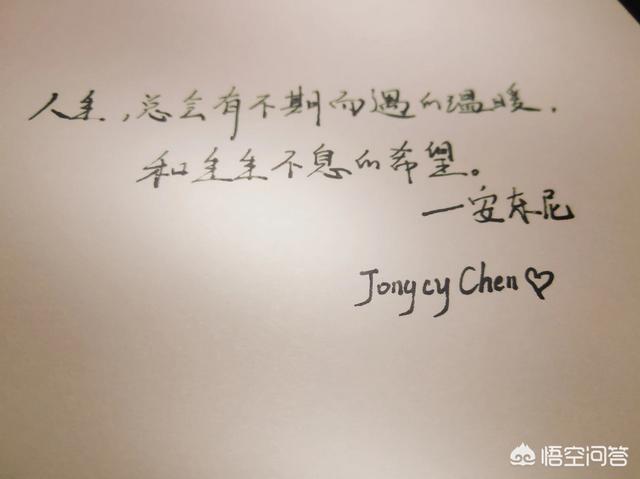 人生,总会有不期而遇的温暖.
和生生不息的希望。
一安东尼
Jongcy Chen♡
悟空问答